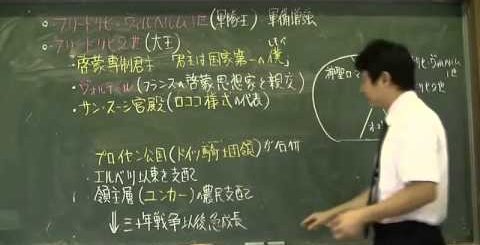 ○フリードリヒ・ヴィルヘルム1世(軍隊王) 軍備増強
○フリードリヒ2世(大王)
・啓蒙専制君主 「君主は国家第一の僕」
しもべ
・ヴォルテール(フランスの啓蒙思想家)と親交
・サン・スーシ宮殿(ロココ様式の代表)
プロイセン公国(ドイツ騎士団領)が
・エルベ川以東を支配
・領主層(ユンカー)の農民支配
⇓三十年戦争以後急成長
神聖ロ
ヴィルヘルム
1世
リヒ2世